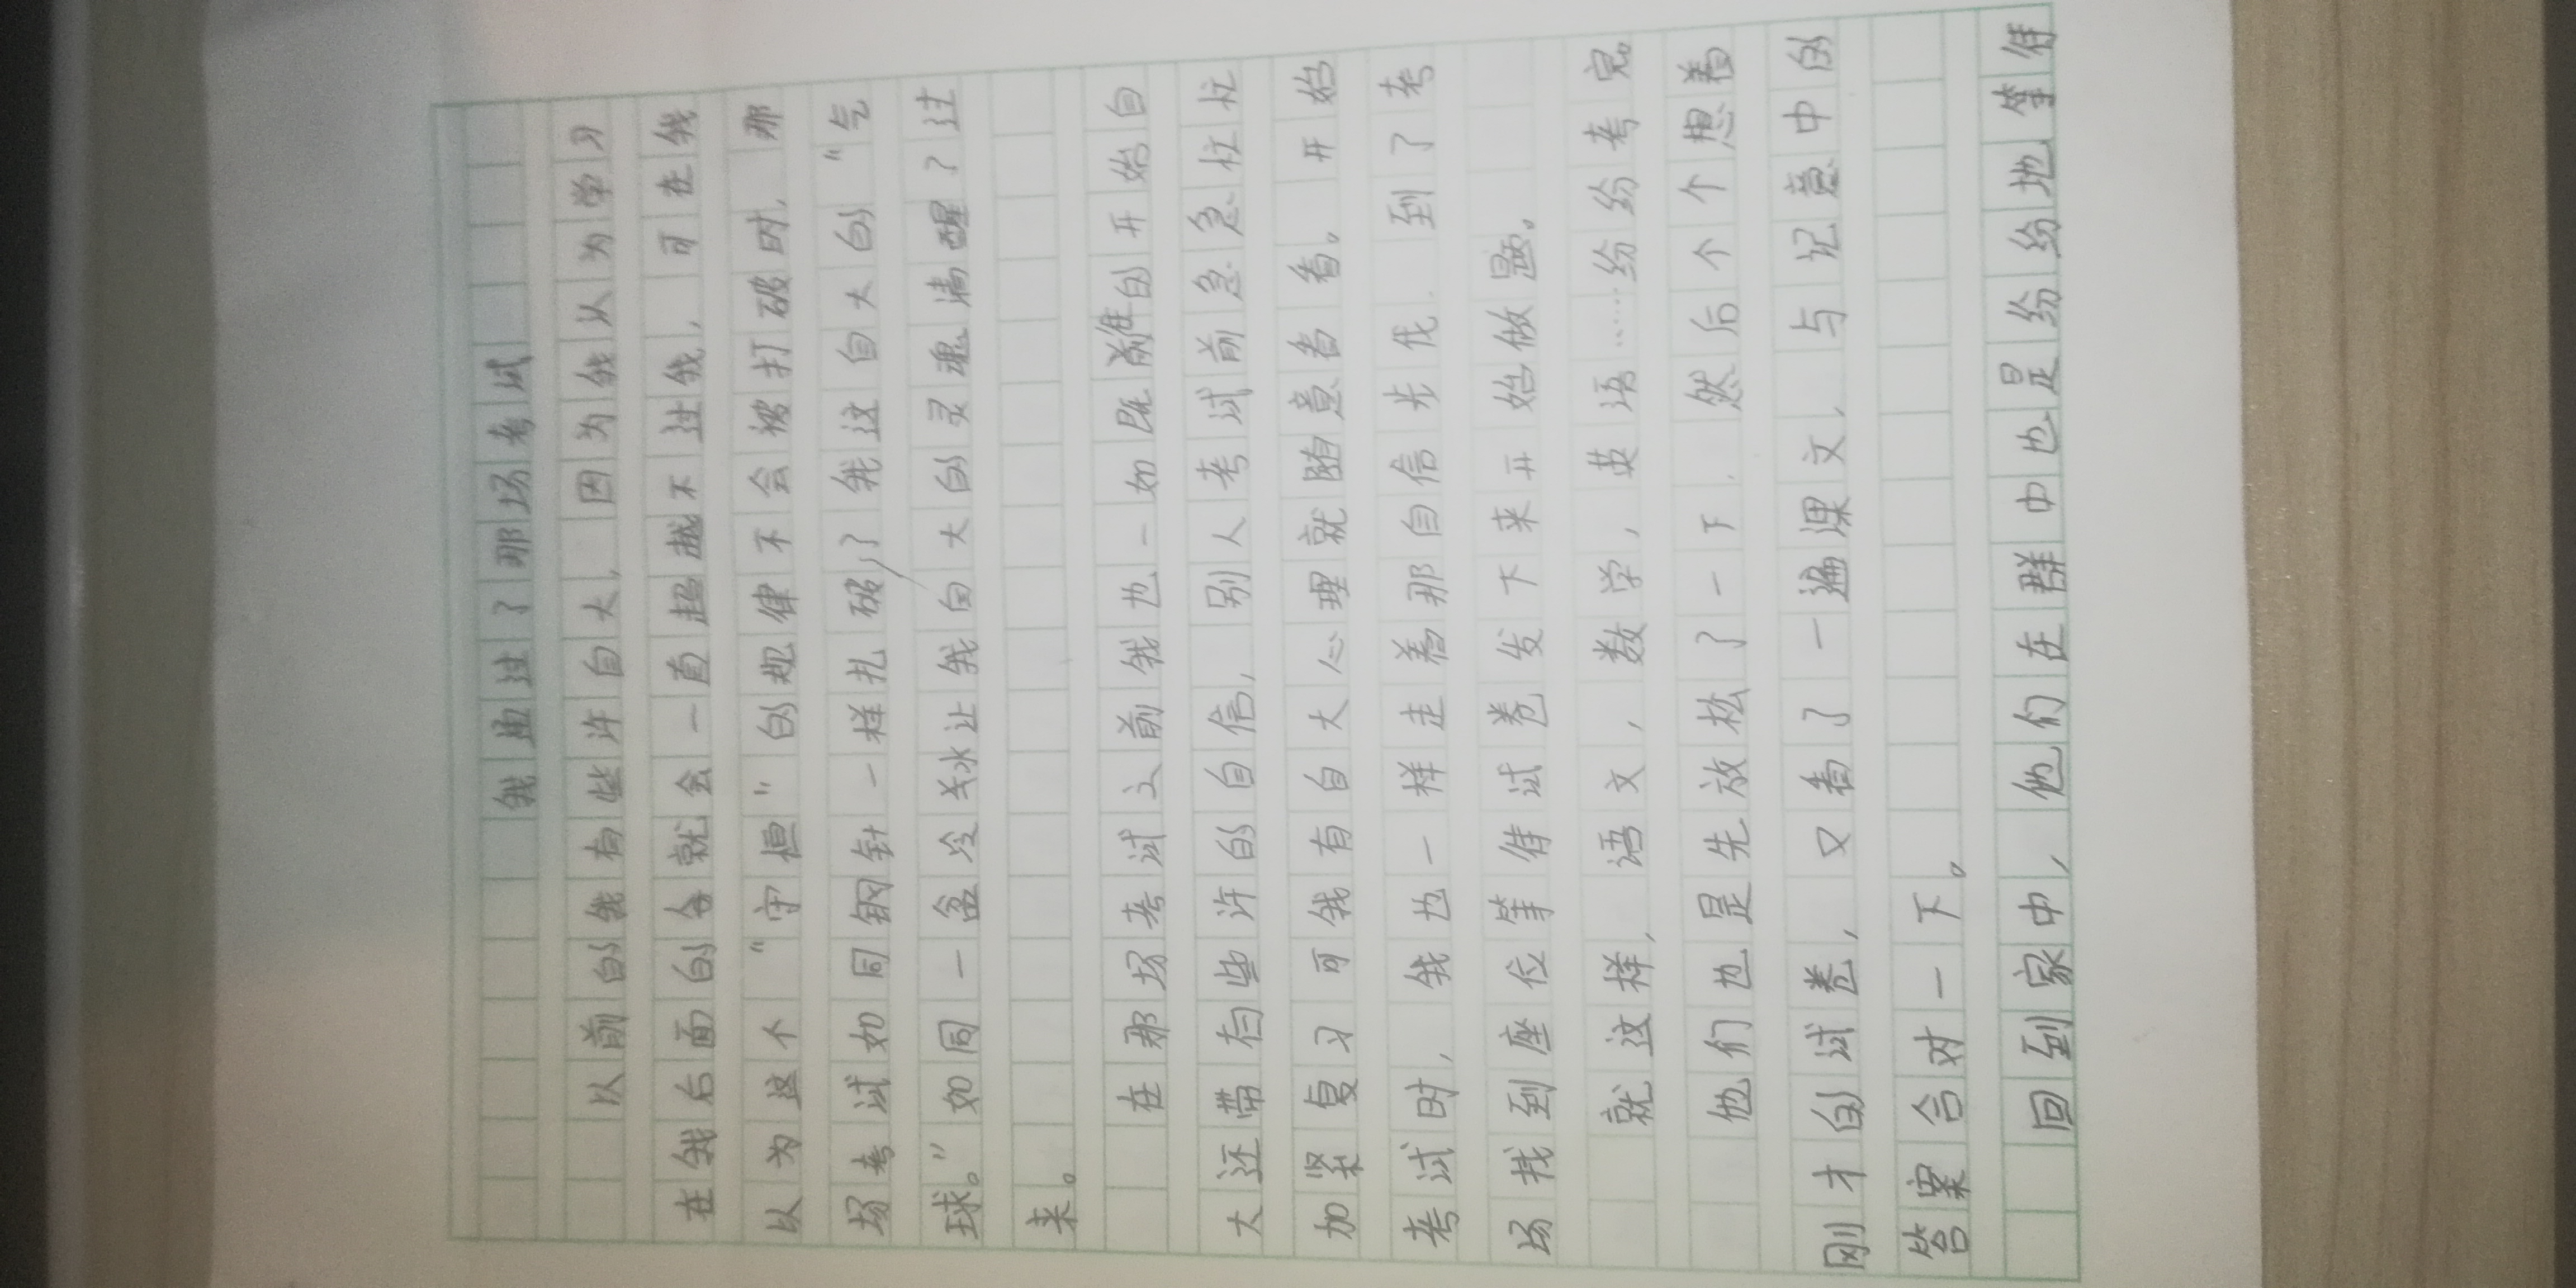 我通过了那场考试
以前的我有些许自大，因为我以为学习
在我后面的人就会一直超越不过我，可在我
以为这个“守恒”的规律不会被打破时，那
场考试如同钢针一样扎破了我这自大的“气
球。”如同一盆冷水让我自大的灵魂清醒了过
来。
在那场考试之前我也一如既往的开始自
大还带有些许的自信，别人考试前急急忙忙
加紧复习可我有自大心理就随意看看。开始
考试时，我也一样走着那自信步伐.到了考
场找到座位等待试卷发下来开始做题。
就这样，语文，数学，英语……纷纷考完。
他们也是先放松了一下.然后个个想着
刚才的试卷，又看了一遍课文，与记意中的
答案合对一下。
回到家中，他们在群中也是纷纷地等待